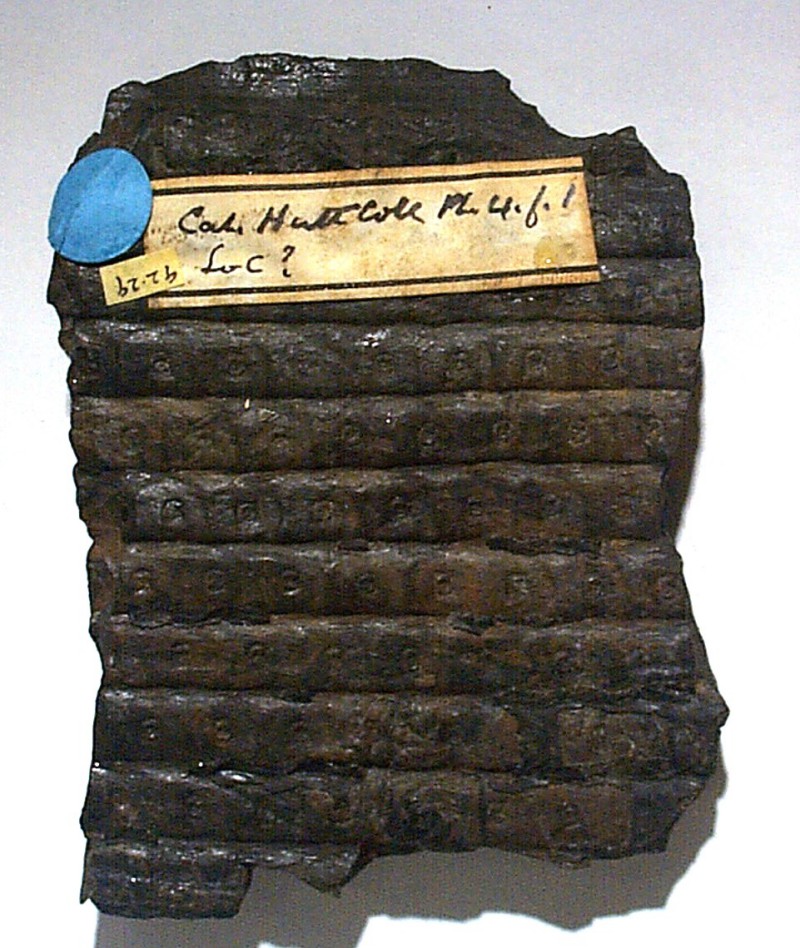 Cat. Hutt Coll Pl. 4. f. 1
Loc ?
42.29